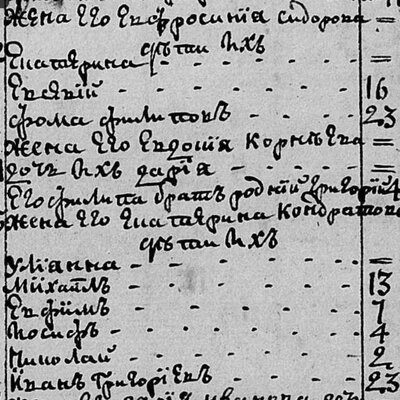 Жена Его Евфросиниа сидорова =
дѣтаи ихъ
Екатерина - - - - =
Евсѣвїй - - - - - 16
фома филиповъ - - 23
Жена Его Евдокия Корнѣева =
дочь ихъ дарїа - - - - =
Его филипа братъ родный григорий 4
Жена Его Екатерина Кондратова
дѣтаи ихъ
Улїанна - - - - - =
Михаилъ - - - - - 13
Ефимъ - - - - - 7
Иосифъ - - - - - 4
Николай - - - - - 2
Иванъ Григорїевъ - - - 23